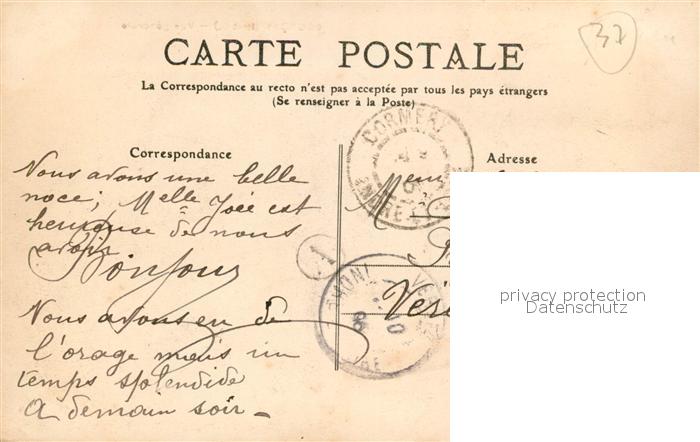 37
CARTE POSTALE
La Correspondance au recto n'est pas acceptée par tous les pays étrangers
(Se renseigner à la Poste)
Correspondance
Adresse
CORMERY
INDRE-ET-L
Nous avons une belle
noce; Melle Joée est
heureuse de nous
avoir
Bonjour
Nous avons eu de
l'orage mais un
temps splendide
A demain soir -
A
Véri
privacy protection
Datenschutz